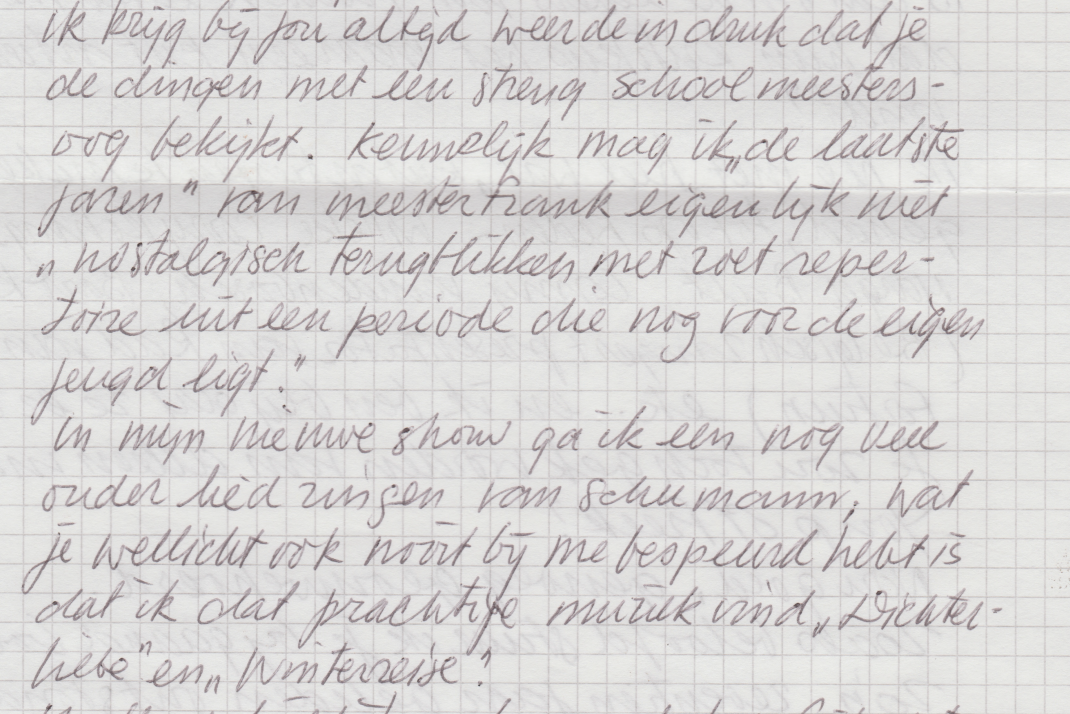 ik krijg bij jou altijd weer de indruk dat je
de dingen met een streng schoolmeesters-
oog bekijkt. Kennelijk mag ik „de laatste
jaren" van meester Frank eigenlijk niet
„nostalgisch terugblikken met zoet reper-
toire uit een periode die nog voor de eigen
jeugd ligt."
In mijn nieuwe show ga ik een nog veel
ouder lied zingen van Schumann; wat
je wellicht ook nooit bij me bespeurd hebt is
dat ik dat prachtige muziek vind „Dichter-
liebe" en „Winterreise"!